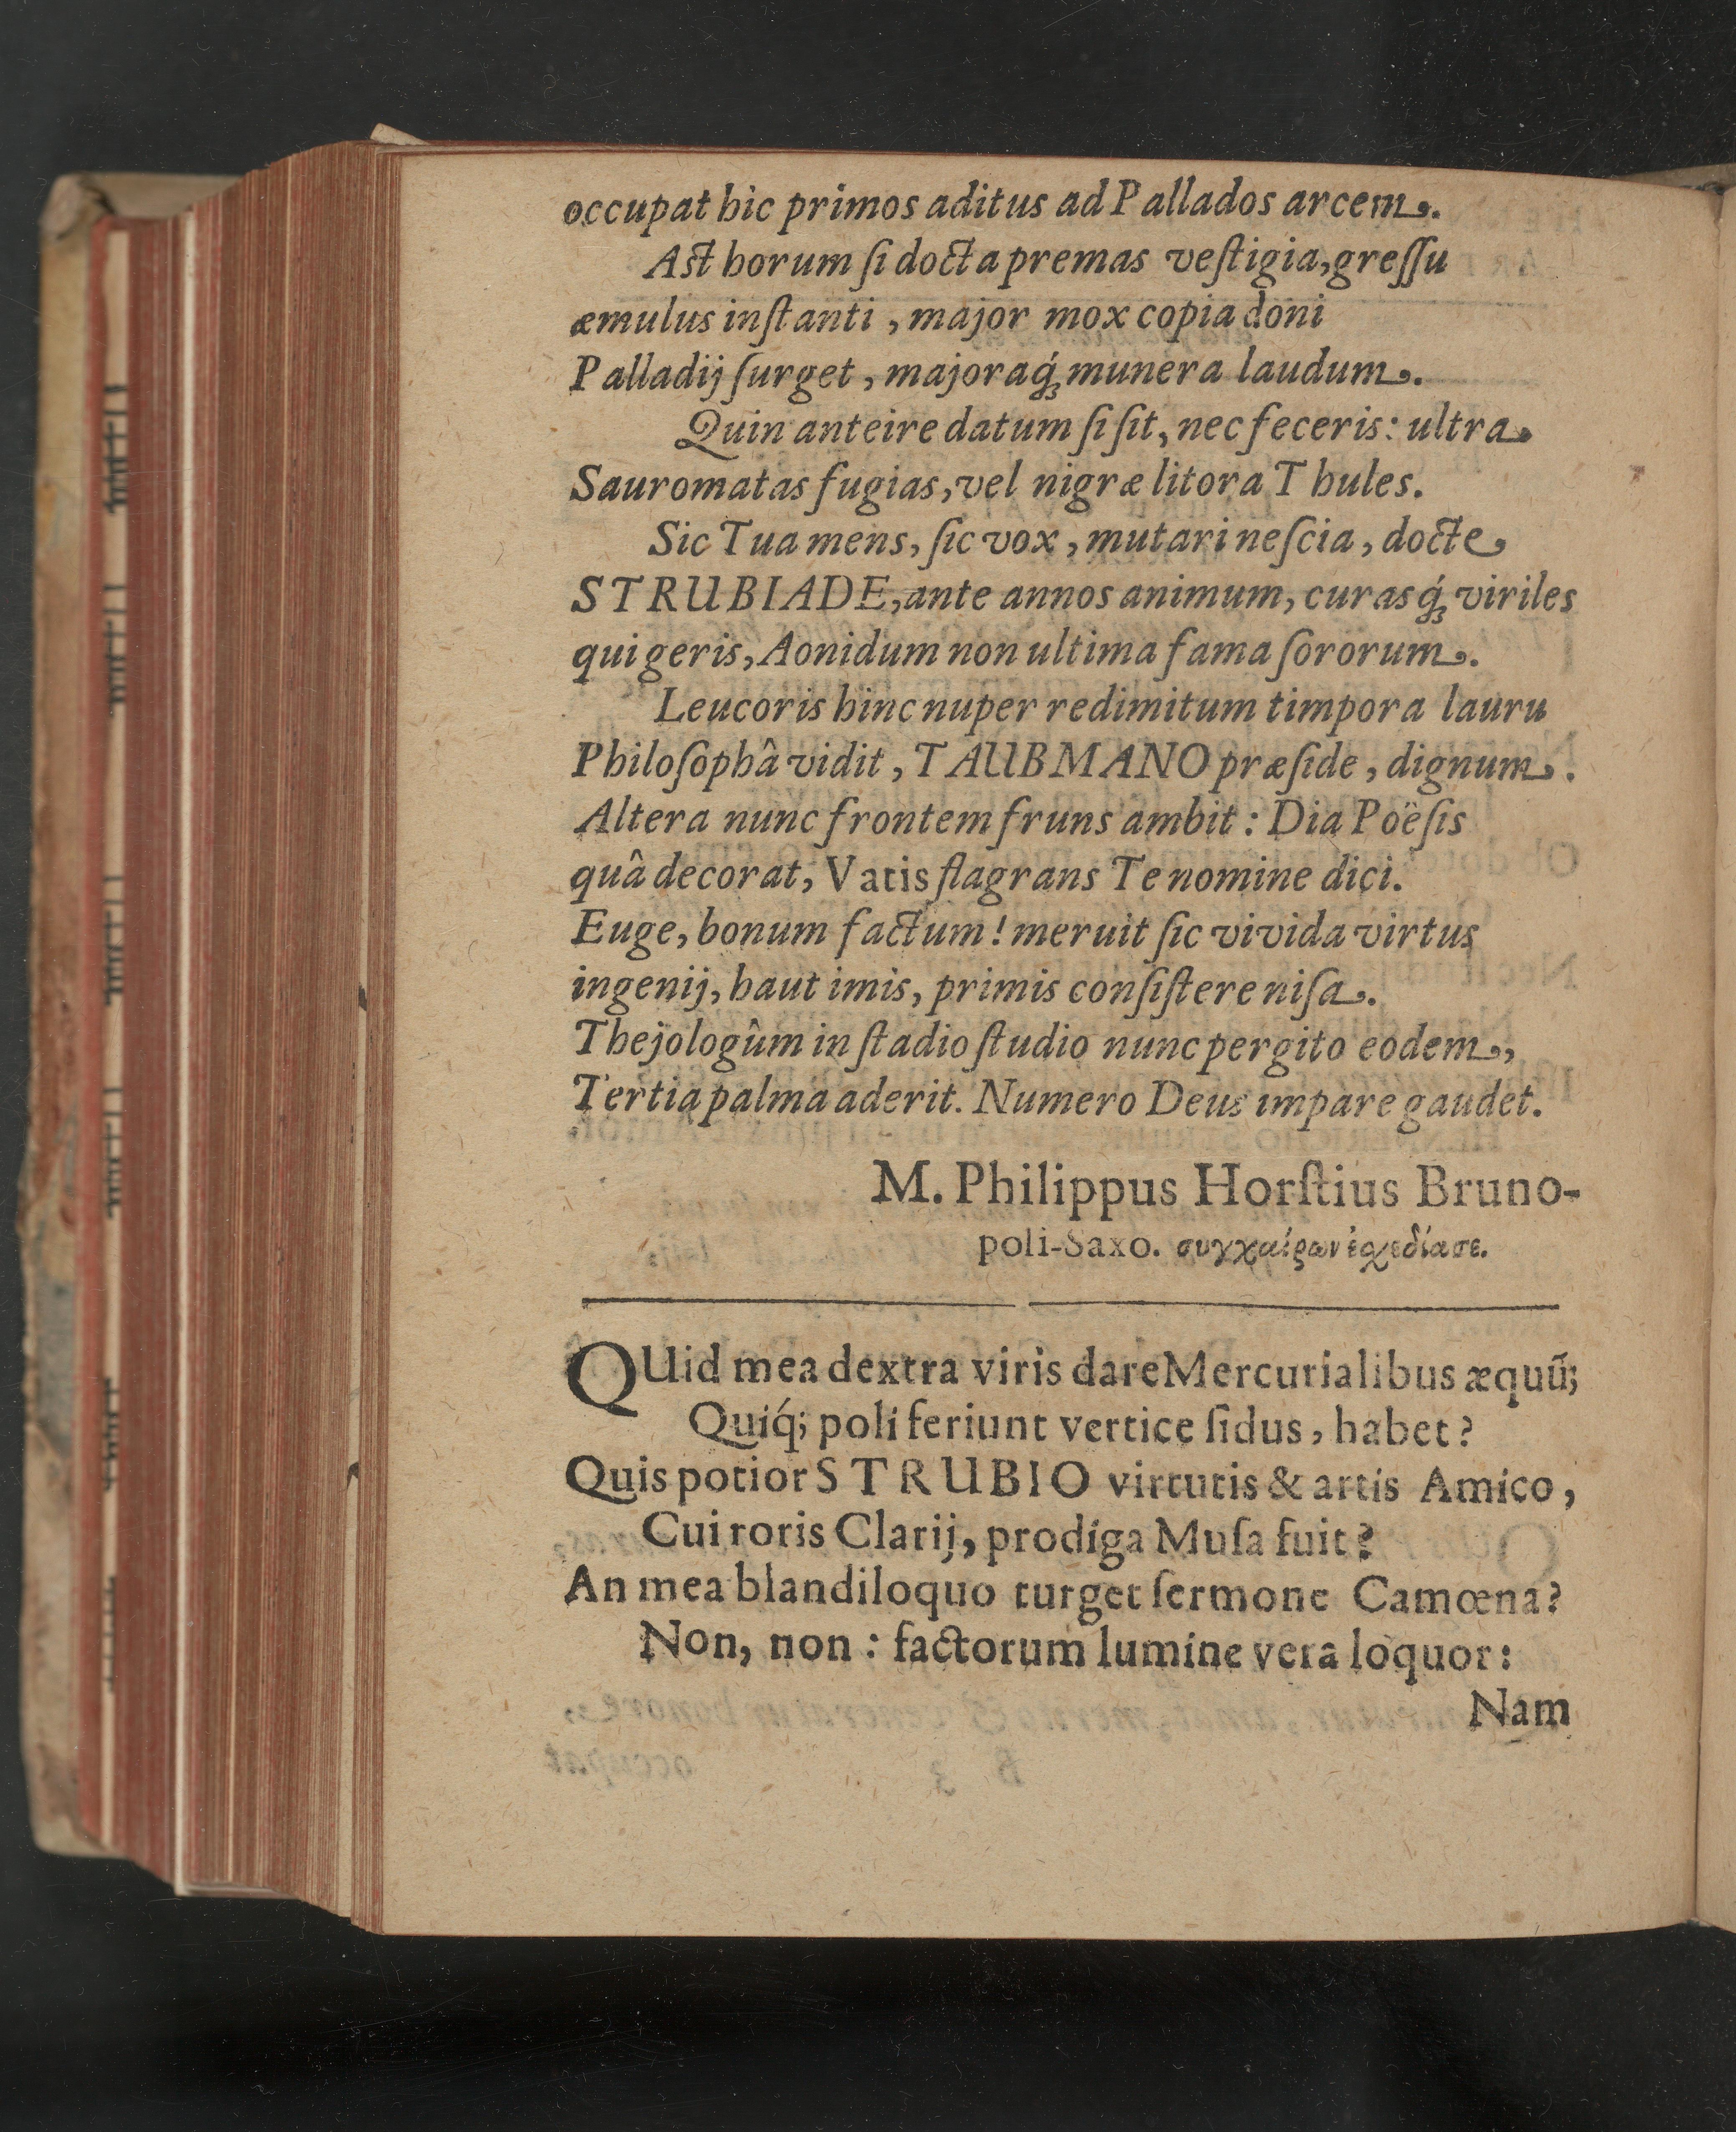 occupat hìc primos aditus ad Pallados arcem.
Aſt horum ſi docta premas veſtigia, greſſu
æmulus inſtanti, major mox copia doni
Palladij ſurget, majoraq́; munera laudum.
Quin anteire datum ſi ſit, nec feceris: ultra
Sauromatas fugias, vel nigræ litora Thules.
Sic Tua mens, ſic vox, mutari neſcia, docte
STRUBIADE, ante annos animum, curasq́; viriles
qui geris, Aonidum non ultima fama ſororum.
Leucoris hinc nuper redimitum timpora lauru
Philoſophâ vidit, TAUBMANO præſide, dignum.
Altera nunc frontem fruns ambit: Dia Poëſis
quâ decorat, Vatis flagrans Te nomine dici.
Euge, bonum factum! meruit ſic vivida virtus
ingenij, haut imis, primis conſiſtere niſa.
Thejologûm in ſtadio ſtudio nunc pergito eodem,
Tertia palma aderit. Numero Deus impare gaudet.
M. Philippus Horſtius Bruno-
poli-Saxo. συγχαίρων ἐσχεδίασε.
QUid mea dextra viris dare Mercurialibus æquū;
Quiq́; poli feriunt vertice ſidus, habet?
Quis potior STRUBIO virtutis & artis Amico,
Cui roris Clarij, prodiga Muſa fuit?
An mea blandiloquo turget ſermone Camœna?
Non, non: factorum lumine vera loquor:
Nam